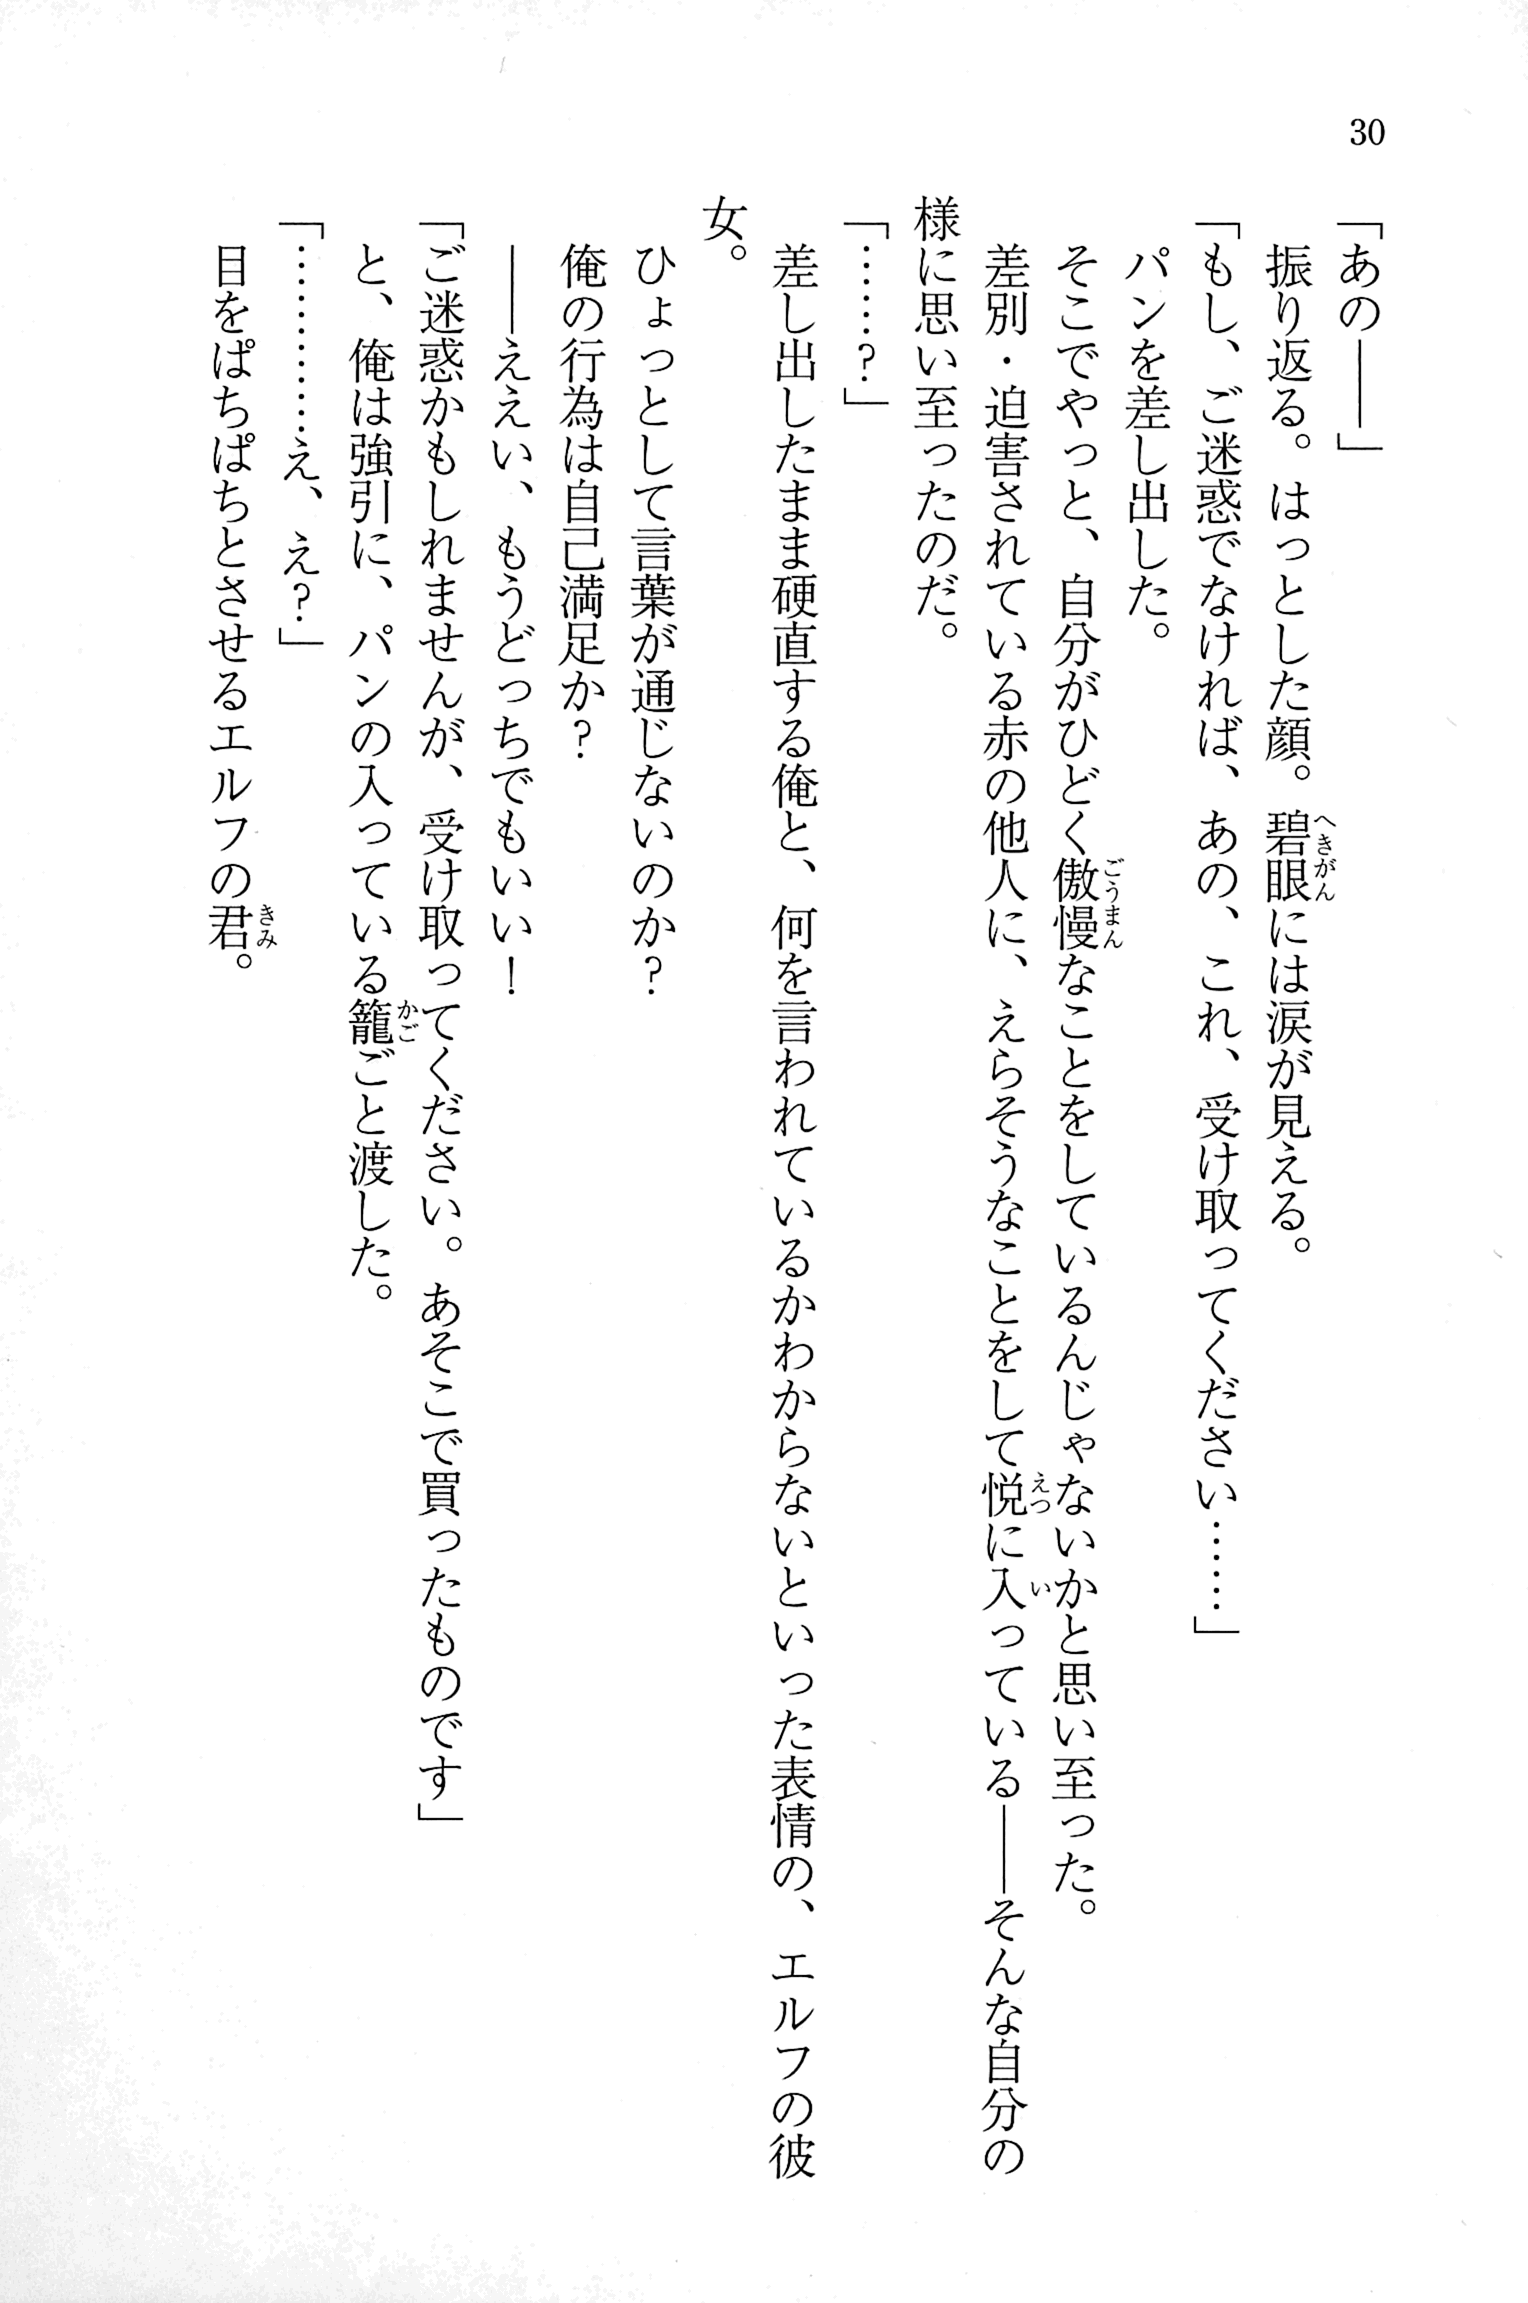 30
「あの――」
振り返る。はっとした顔。碧眼には涙が見える。
「もし、ご迷惑でなければ、あの、これ、受け取ってください……」
パンを差し出した。
そこでやっと、自分がひどく傲慢なことをしているんじゃないかと思い至った。
差別・迫害されている赤の他人に、えらそうなことをして悦に入っている――そんな自分の
様に思い至ったのだ。
「……？」
差し出したまま硬直する俺と、何を言われているかわからないといった表情の、エルフの彼
女。
ひょっとして言葉が通じないのか？
俺の行為は自己満足か？
――ええい、もうどっちでもいい！
「ご迷惑かもしれませんが、受け取ってください。あそこで買ったものです」
と、俺は強引に、パンの入っている籠ごと渡した。
「…………え、え？」
目をぱちぱちとさせるエルフの君。
へきがん
ごうまん
えつ
い
かご
きみ